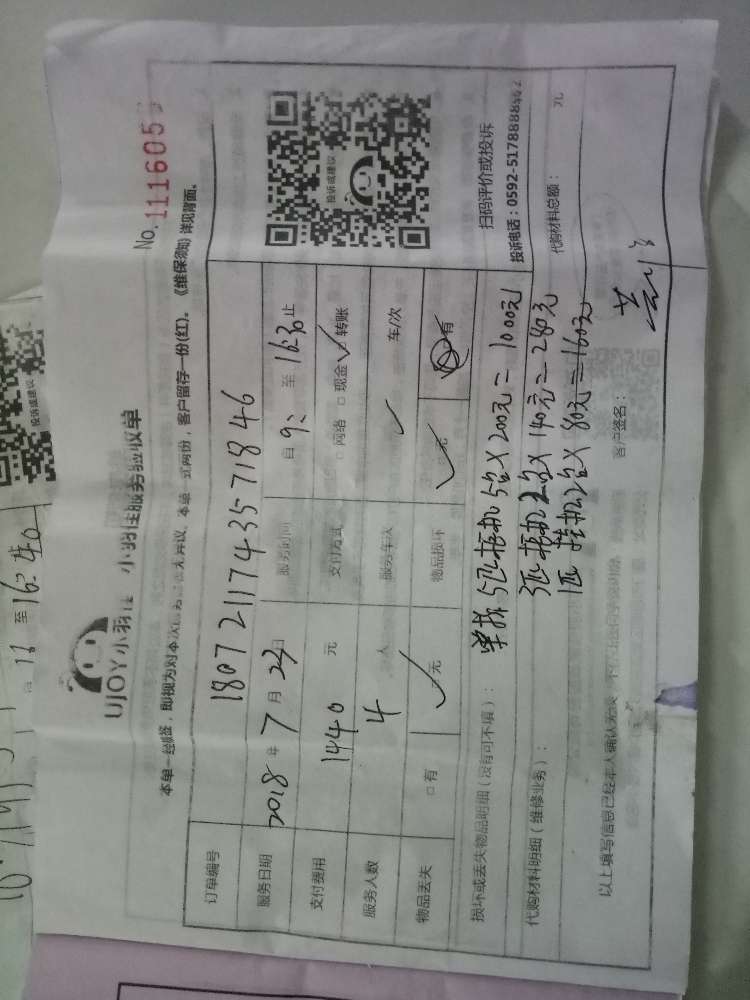 No. 111605
UJOY小羽佳 小羽佳服务验收单
本单一经签, 即视为对本次服务
无异议。本单一式两份，客户留存一份(红)。《维保须知》详见背面。
订单编号 180721174357 1846
服务日期 2018 年 7 月 23 日 服务时间 自 9: 至 16:30 止
支付费用 1440 元 支付方式 □ 网络 □ 现金 ☑ 转账
服务人数 4 人 服务车次 车/次
物品丢失 □ 有 ☑ 无 物品损坏 ☑ 无 有
损坏或丢失物品明细（没有可不填）：
单拆 5匹柜机 5台 X 200元 = 1000元
代购材料明细（维修业务）：
3匹柜机 2台 X 140元 = 280元
1匹 挂机 2台 X 80元 = 160元
投诉或建议
扫码评价或投诉
投诉电话：0592-5178888
代购材料总额： 元
以上填写信息已经本人确认无误
客户签名：
投诉或建议
至 16:40